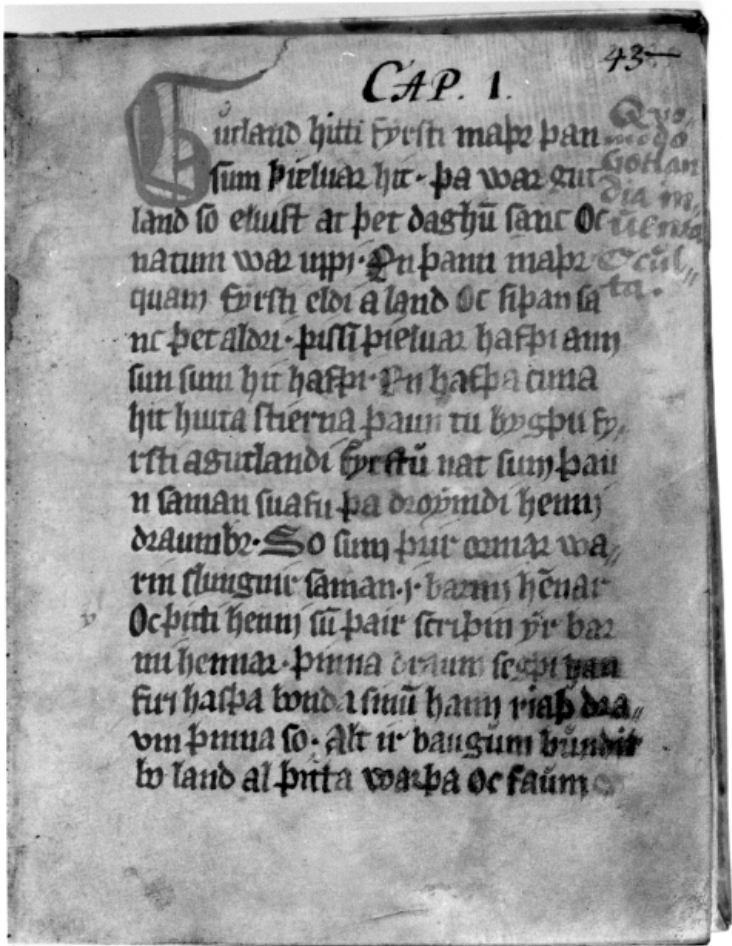 CAP. 1.
43
Gutland hitti fyrsti maþr þan
sum þieluar hit · þa war gut
land so eluist at þet daghū sanc Oc
natum war uppi · En þann maþr
quam fyrsti eldi a land Oc siþan sa
nc þet aldri · þissi þieluar hafþi ann
sun sum hit hafþi · En hafþa cuna
hit huita stierna þaun tu bygþu fy„
rsti a gutlandi fyrstu nat sum þau
n saman suafu þa droymdi henni
draumbr · So sum þrir ormar wa„
rin slungnir saman · i barmi hēnar
Oc þitti henni sū þair scriþin yr bar
mi hennar · þinna draum segþi han
firi hasþa bonda sinū hann riaþ dra„
vm þinna so · Alt ir baugum bundit
bo land al þitta warþa oc faum
Quo„
modo
Gotlan
dia in„
uenta
Occul„
ta.